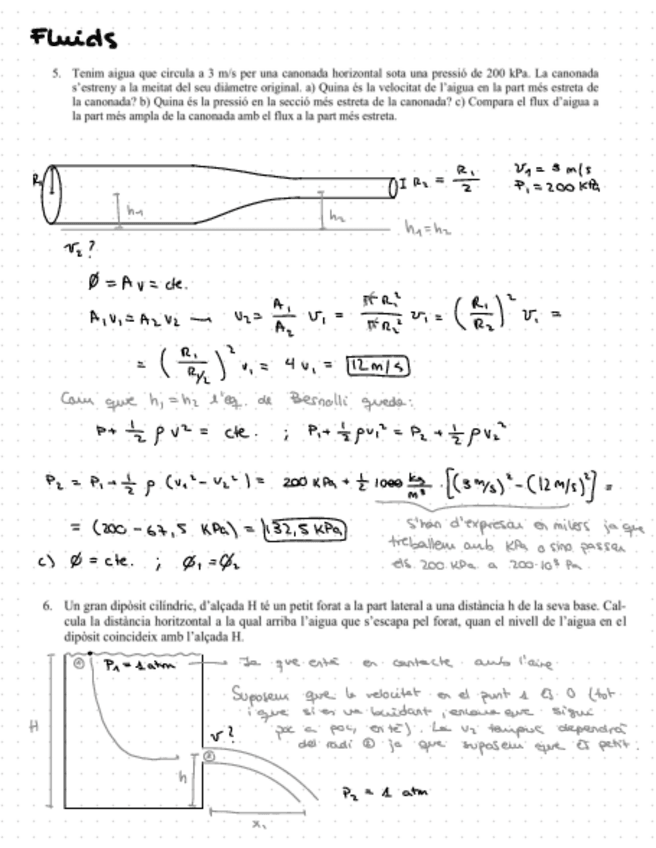 Fluids
5. Tenim aigua que circula a 3 m/s per una canonada horizontal sota una pressió de 200 kPa. La canonada
s'estreny a la meitat del seu diàmetre original. a) Quina és la velocitat de l'aigua en la part més estreta de
la canonada? b) Quina és la pressió en la secció més estreta de la canonada? c) Compara el flux d'aigua a
la part més ampla de la canonada amb el flux a la part més estreta.
R₁ h₁ h₂ R₂ = R₁/2 v₁ = 3 m/s
P₁ = 200 KPa
h₁ = h₂
v₂?
Ø = A v = cte.
A₁V₁ = A₂V₂ → V₂ = A₁/A₂ v₁ = π R₁²/π R₂² v₁ = (R₁/R₂)² v₁ =
= (R₁/R₁/₂)² v₁ = 4 v₁ = 12 m/s
Com que h₁ = h₂ l'eq. de Bernolli queda:
P + 1/2 ρ v² = cte. ; P₁ + 1/2 ρv₁² = P₂ + 1/2 ρv₂²
P₂ = P₁ + 1/2 ρ (v₁² - v₂²) = 200 KPa + 1/2 1000 kg/m³ · [(3 m/s)² - (12 m/s)²] =
= (200 - 67,5 KPa) = 132,5 KPa
s'han d'expresar en milers ja que
treballem amb KPa o sino passar
els 200 KPa a 200·10³ Pa
c) Ø = cte. ; Ø₁ = Ø₂
6. Un gran dipòsit cilíndric, d'alçada H té un petit forat a la part lateral a una distància h de la seva base. Cal-
cula la distància horitzontal a la qual arriba l'aigua que s'escapa pel forat, quan el nivell de l'aigua en el
dipòsit coincideix amb l'alçada H.
① P₁ = 1 atm → Ja que està en contacte amb l'aire
Suposem que la velocitat en el punt 1 és 0 (tot
i que si es va buidant, encara que sigui
poc a poc, en té). La v₂ tampoc dependrà
del radi ② ja que suposem que és petit.
H
v?
②
h
P₂ = 1 atm
x₁